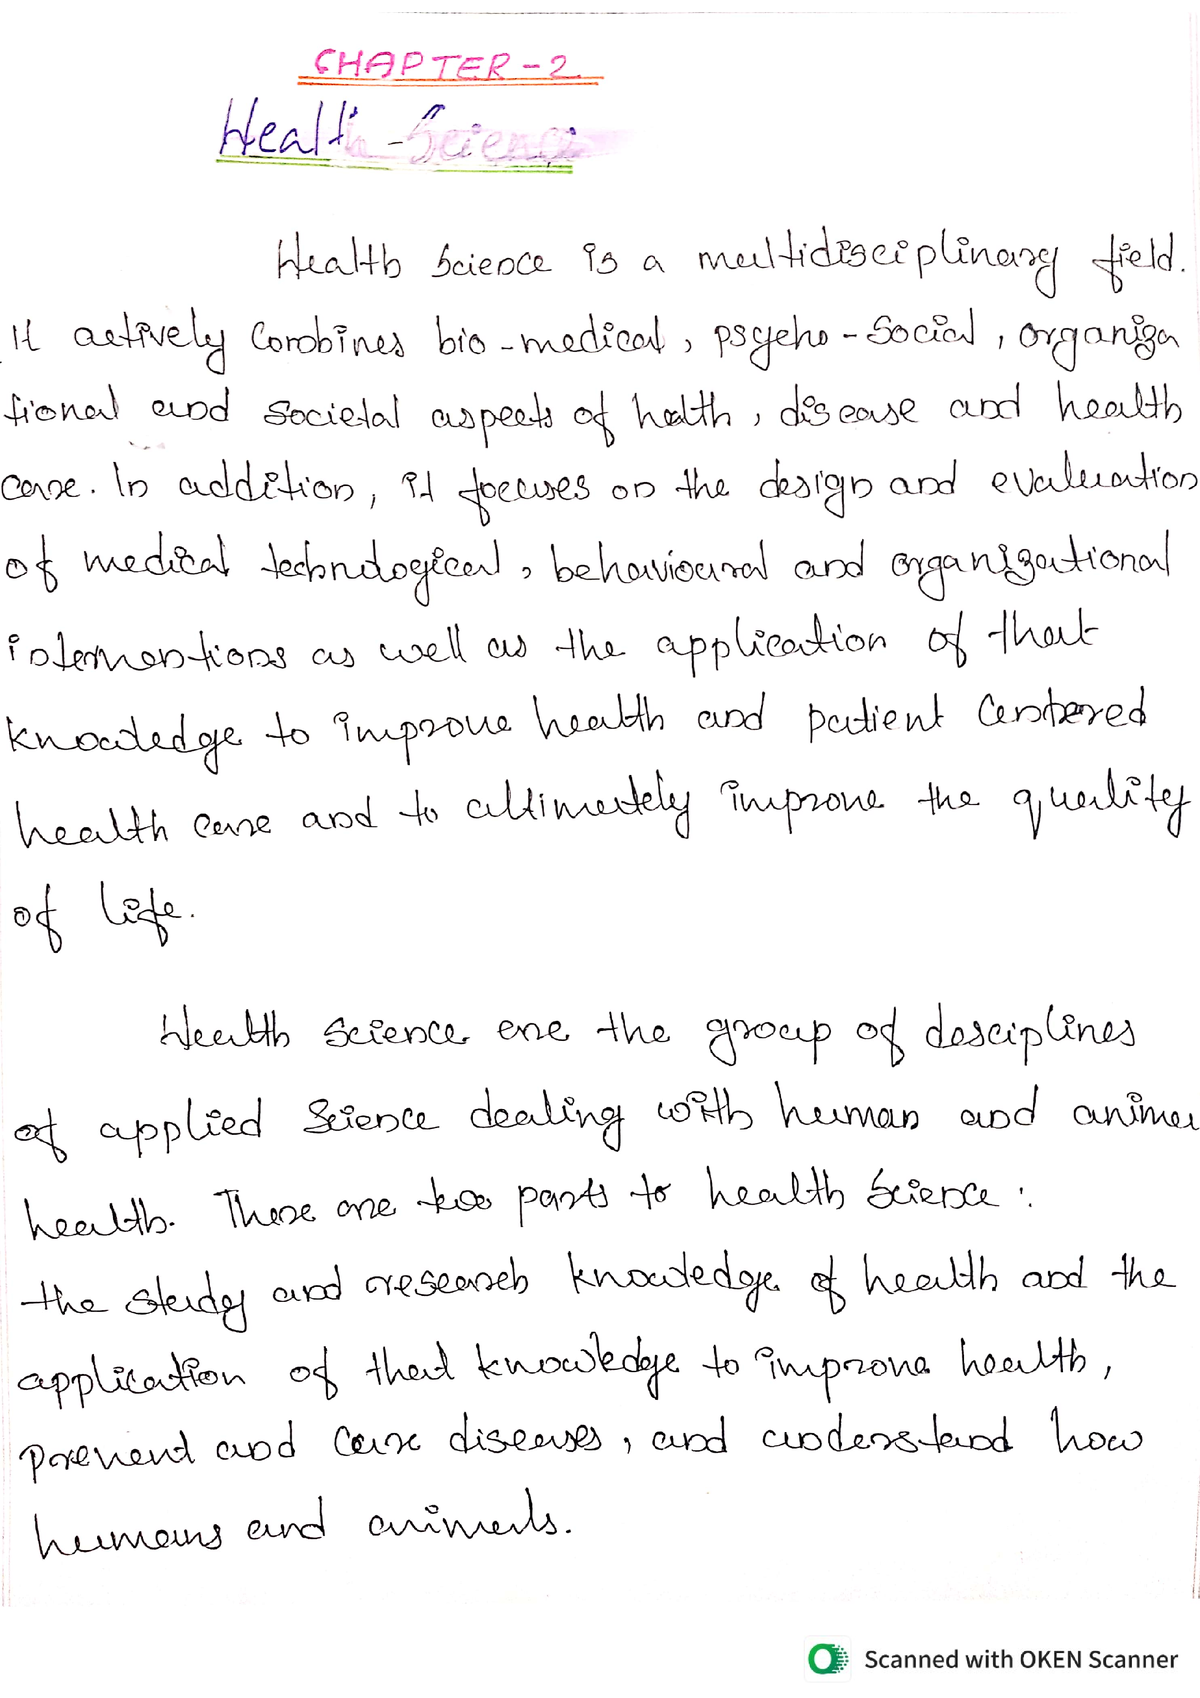 CHAPTER - 2
Health - Science
Health Science is a multidisciplinary field.
It actively Combines bio - medical, psycho - Social, organiza
tional and Societal aspects of halth, disease and health
care. In addition, it focuses on the design and evaluation
of medical technological, behavioural and organizational
interventions as well as the application of that
knowledge to improve health and patient Centered
health care and to ultimately improve the quality
of life.
Health Science are the group of desciplines
of applied Science dealing with human and anima
health. There are two parts to health Science :
the study and research knowledge of health and the
application of that knowledge to improve health,
prevent and Cure diseases, and understand how
humans and animals.
Scanned with OKEN Scanner